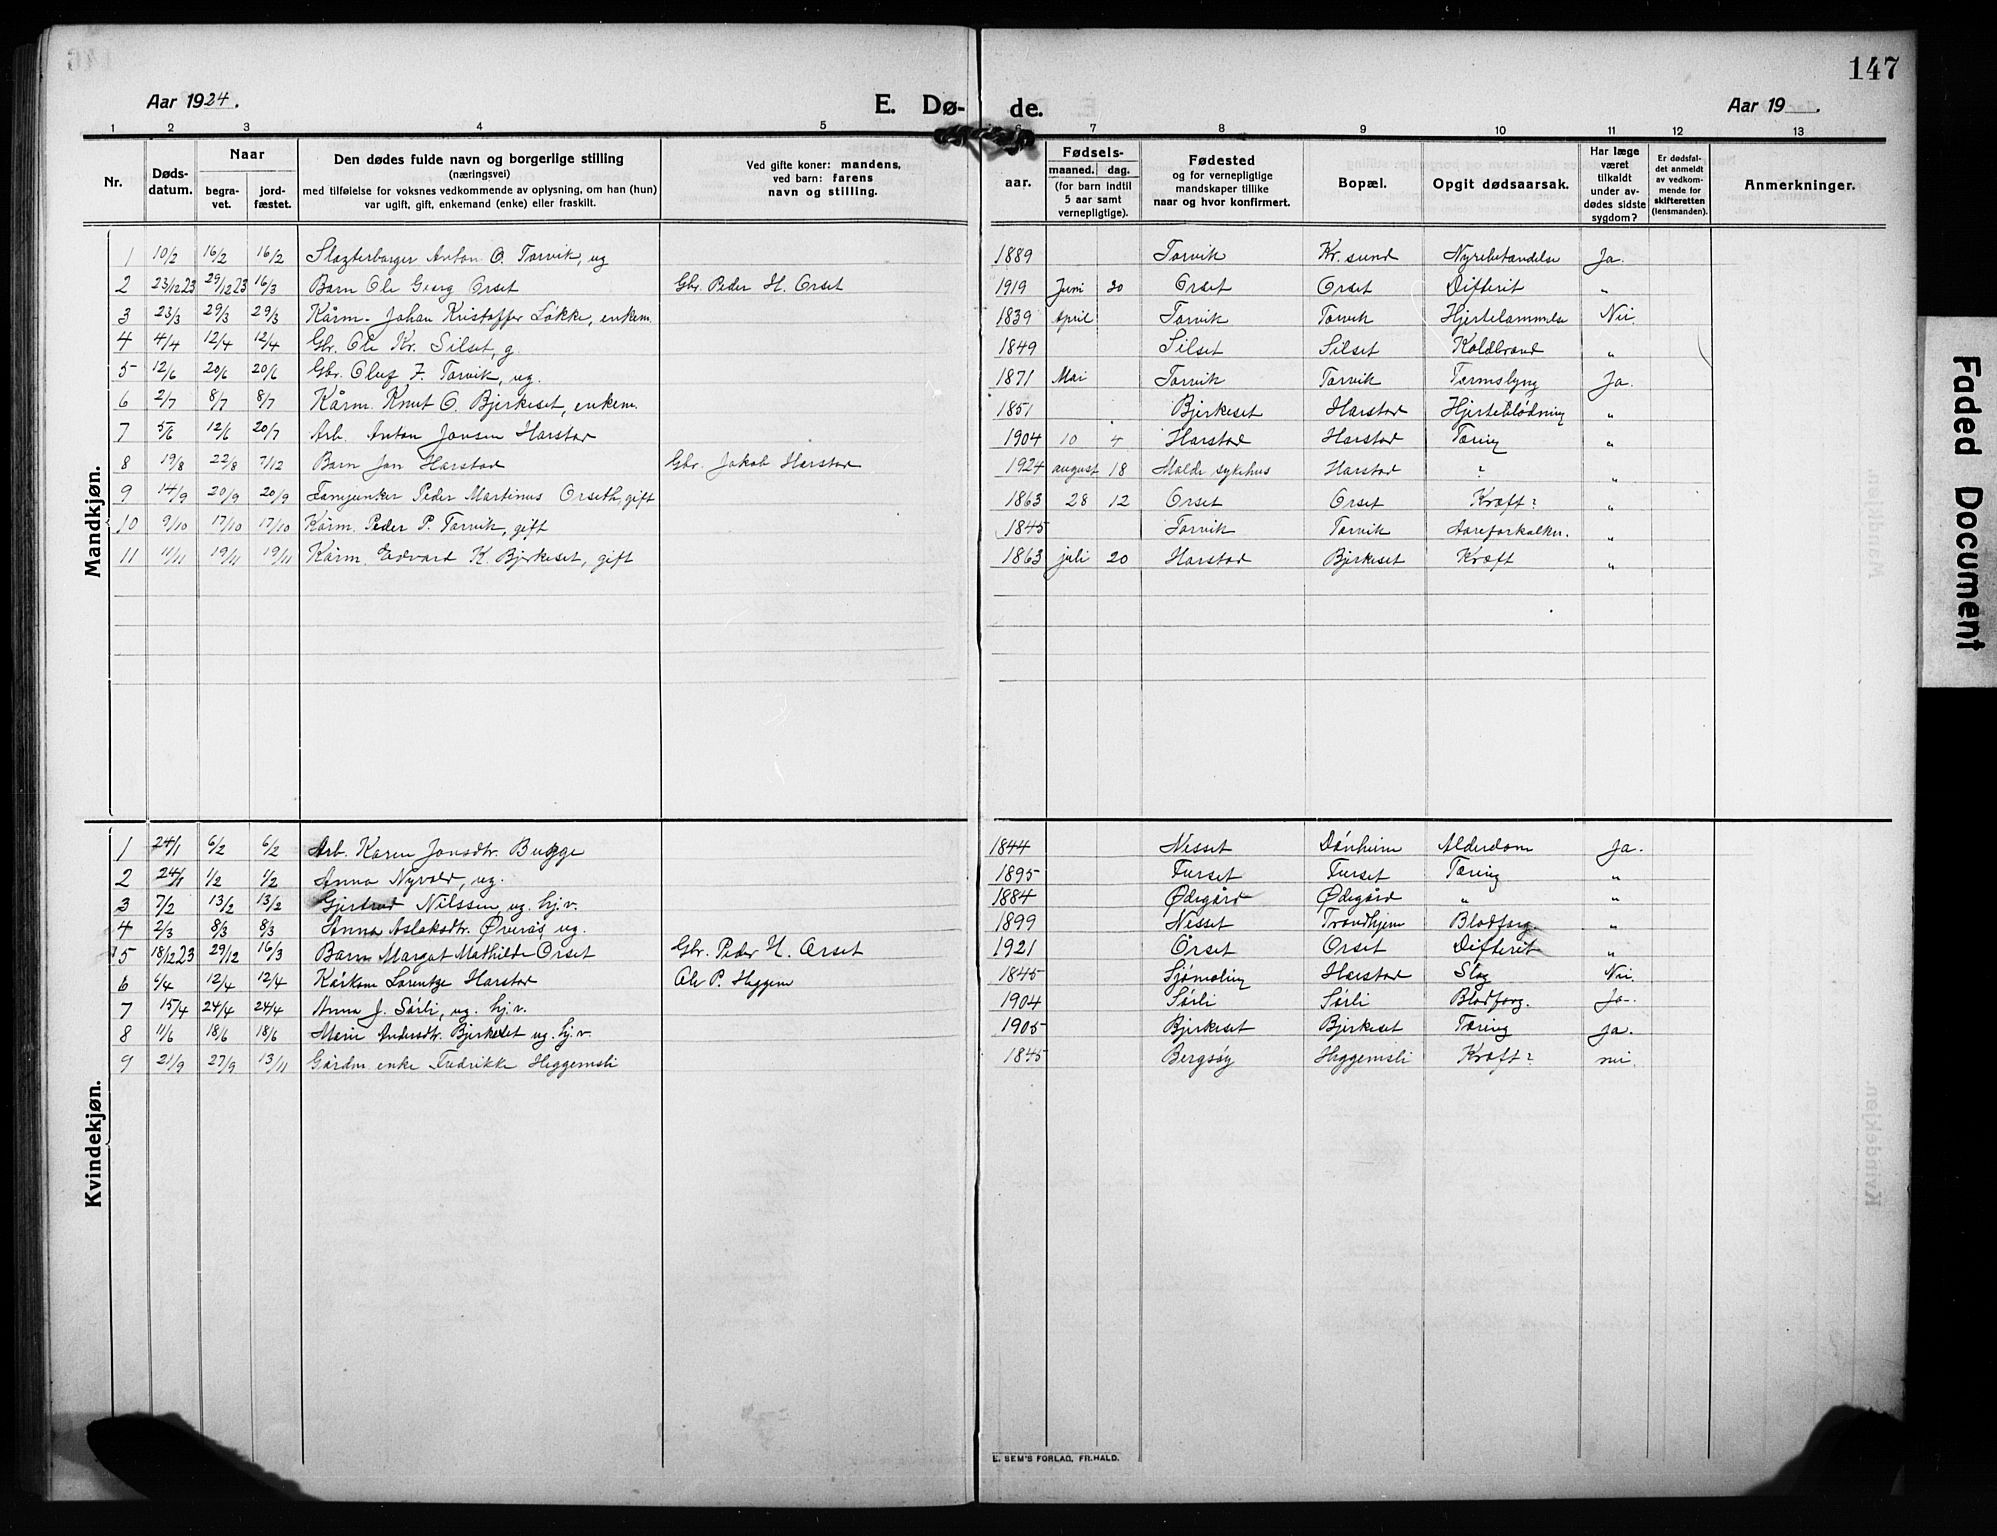 147
Aar 1924. E. Dø- de. Aar 19 .
1 2 3 4 5 6 7 8 9 10 11 12 13
Nr. Døds-datum. Naar begra-vet. jord-fæstet. Den dødes fulde navn og borgerlige stilling (næringsvei) med tilføielse for voksnes vedkommende av oplysning, om han (hun) var ugift, gift, enkemand (enke) eller fraskilt. Ved gifte koner: mandens, ved barn: farens navn og stilling. Fødsels- aar. maaned. dag. (for barn indtil 5 aar samt vernepligtige). Fødested og for vernepligtige mandskaper tillike naar og hvor konfirmert. Bopæl. Opgit dødsaarsak. Har læge været tilkaldt under av-dødes sidste sygdom? Er dødsfal-det anmeldt av vedkom-mende for skifteretten (lensmanden). Anmerkninger.
Mandkjøn.
1 10/2 16/2 16/2 Anton O. Torvik, ug 1889 Torvik Kr.sund Nyrebetændelse Ja.
2 23/12 23 29/12 23 16/3 Barn Ole Georg Orset Gbr. Peder H. Orset 1919 Juni 20 Orset Orset Difterit "
3 23/3 29/3 29/3 Kårm. Johan Kristoffer Løkke, enkem. 1839 April Torvik Torvik Hjertelammelse Nei.
4 4/4 12/4 12/4 Gbr. Ole Kr. Silset, g. 1849 Silset Silset Koldbrand "
5 12/6 20/6 20/6 Gbr. Oluf J. Torvik, ug. 1871 Mai Torvik Torvik Tarmslyng Ja.
6 2/7 8/7 8/7 Kårm. Knut O. Bjerkeset, enkem. 1851 Bjerkeset Harstad Hjerteblødning "
7 5/6 12/6 20/7 Arb. Anton Jonsen Harstad 1904 10 4 Harstad Harstad Tæring "
8 19/8 22/8 7/12 Barn Jon Harstad Gbr. Jakob Harstad 1924 august 18 Molde sykehus Harstad ? "
9 14/9 20/9 20/9 Peder Martinus Orseth, gift 1863 28 12 Orset Orset Kræft? "
10 9/10 17/10 17/10 Kårm. Peder P. Torvik, gift 1845 Torvik Torvik Aareforkalkn. "
11 11/11 19/11 19/11 Kårm. Edvard K. Bjerkeset, gift 1863 juli 20 Harstad Bjerkeset Kræft "
Kvindekjøn.
1 24/1 6/2 6/2 Arb. Karen Jonsdtr. Bugge 1844 Nesset Alderdom Ja.
2 24/1 1/2 1/2 Anna Nyvold, ug. 1895 Furset Furset Tæring "
3 7/2 13/2 13/2 Gjertrud Nilssen ug. hj.v. 1884 Ødegård Ødegård " "
4 2/3 8/3 8/3 Anna Aslaksdtr. Øverås ug. 1899 Nesset Trondhjem Blodforg. "
5 18/12 23 29/12 16/3 Barn Margot Mathilde Orset Gbr. Peder H. Orset 1921 Orset Orset Difterit "
6 6/4 12/4 12/4 Kårkone Lorentze Harstad Ole P. Heggem 1845 Harstad Slag Nei
7 15/4 24/4 24/4 Anna J. Sørli, ug. hj.v. 1904 Sørli Sørli Blodforg. Ja.
8 11/6 18/6 18/6 Merie Andersdtr. Bjerkeset ug. hj.v. 1905 Bjerkeset Bjerkeset Tæring ja.
9 21/9 27/9 13/11 Gårdm. enke Fredrikke Heggemsli 1845 Bergsøy Heggemsli Kræft? nei.
E. SEM'S FORLAG, FR.HALD.
Faded Document